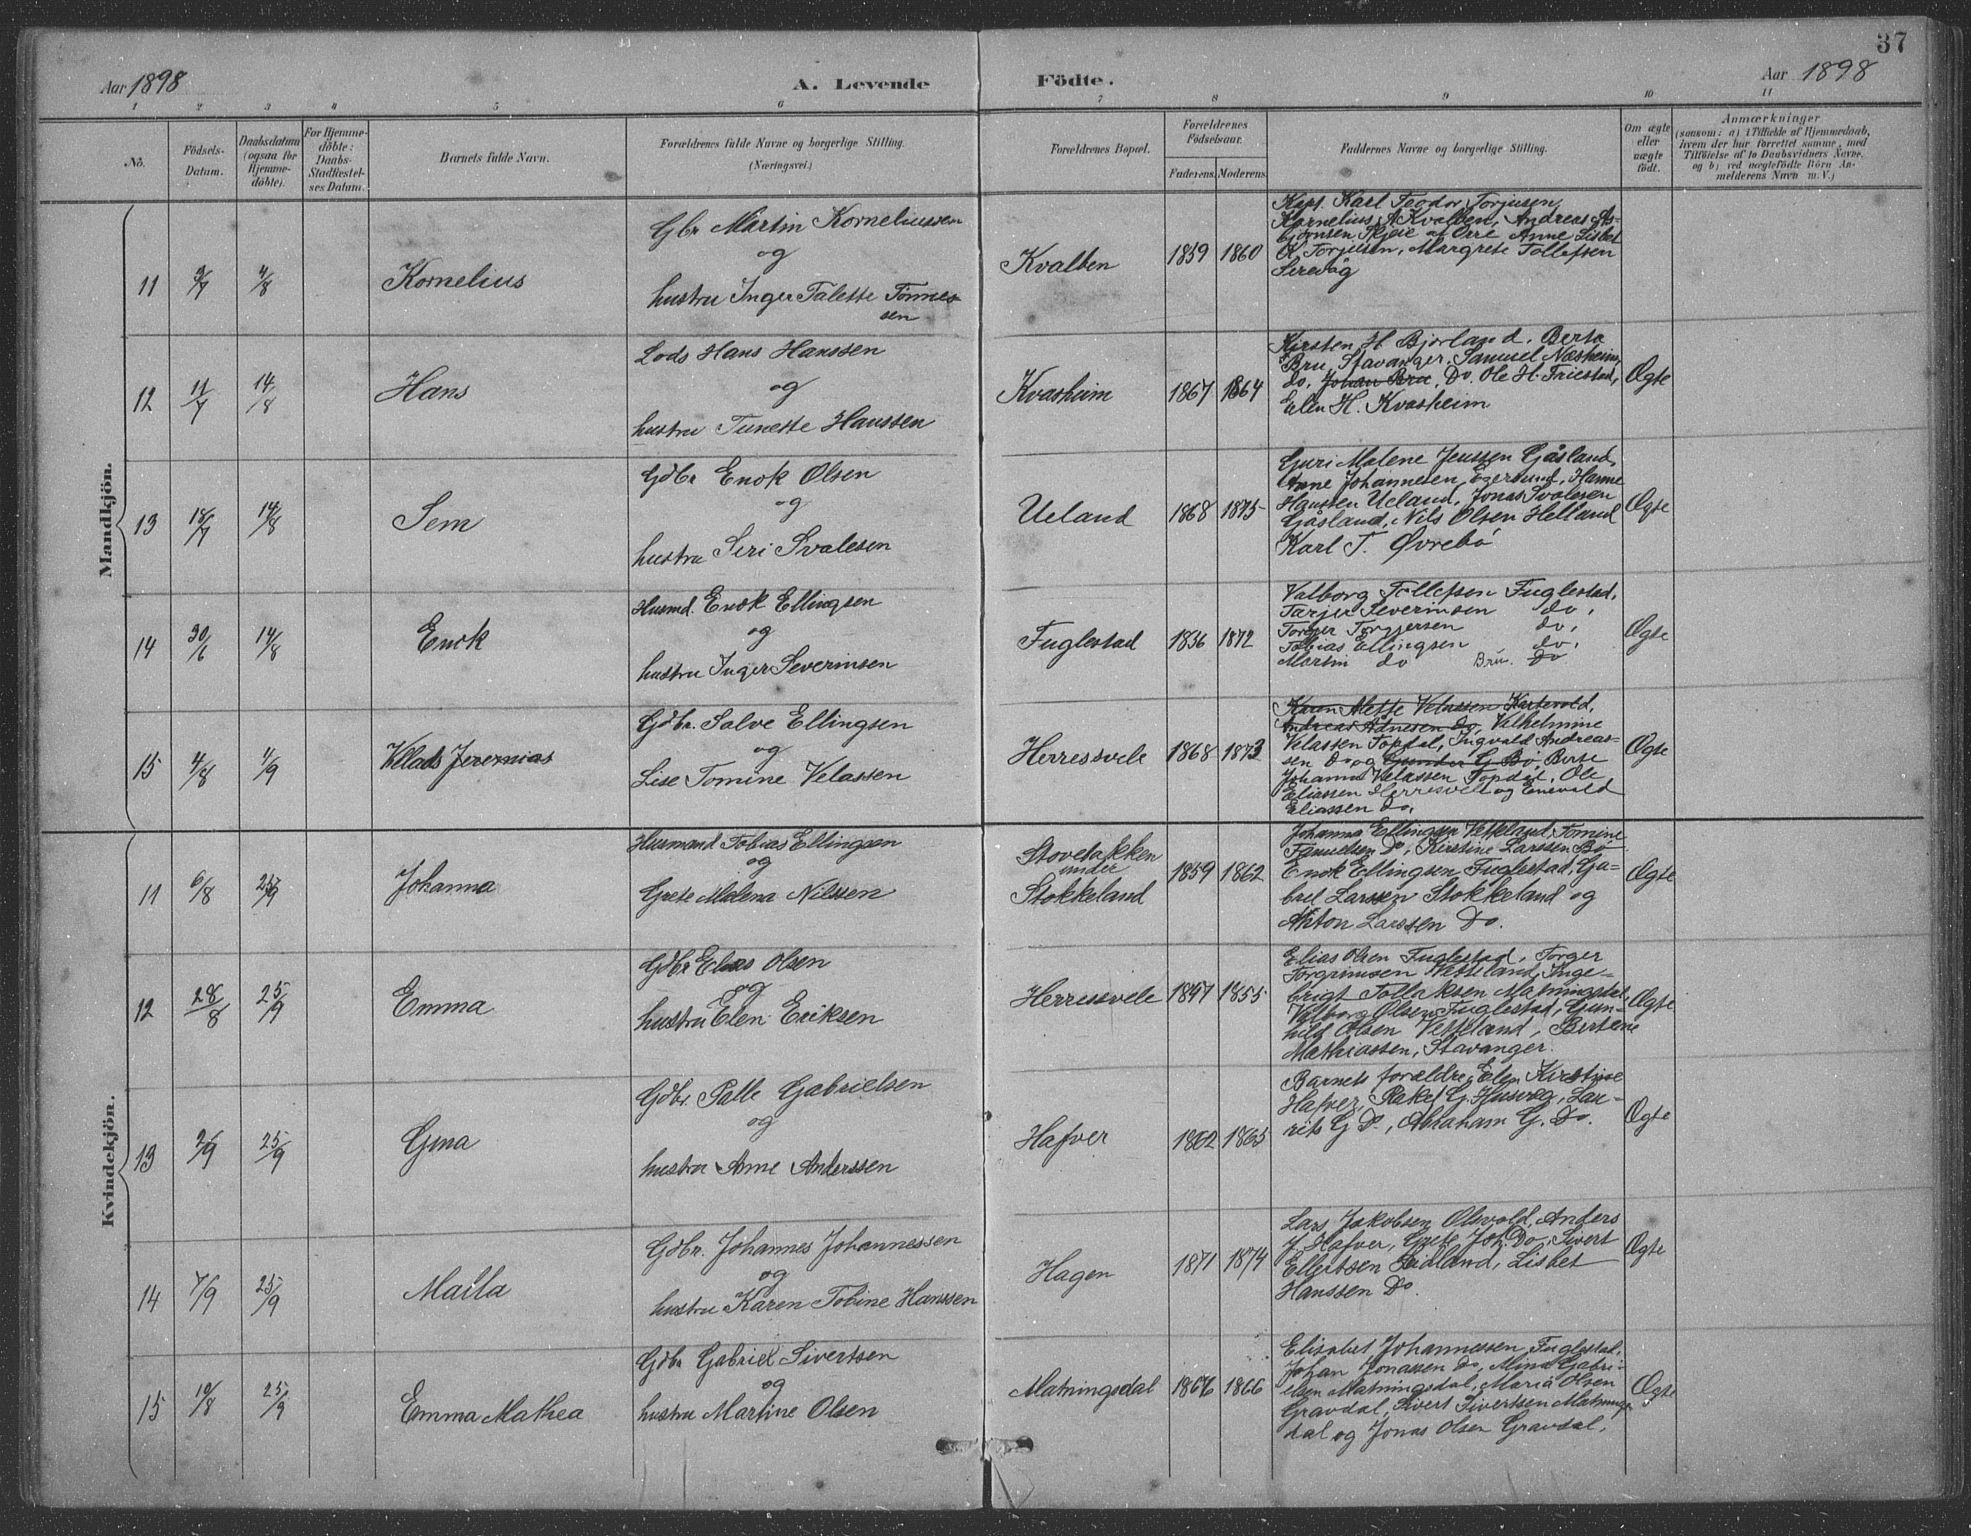 37
Aar 1898
A. Levende
Födte.
Aar 1898
1 2 3 4 5 6 7 8 9 10 11
No.
Födsels-
Datum.
Daabsdatum
(ogsaa for
Hjemme-
döbte).
For Hjemme-
döbte:
Daabs-
Stadfæstel-
ses Datum.
Barnets fulde Navn.
Forældrenes fulde Navne og borgerlige Stilling.
(Næringsvei.)
Forældrenes Bopæl.
Forældrenes
Födselsaar.
Faderens. Moderens.
Faddernes Navne og borgerlige Stilling.
Om ægte
eller
uægte
födt.
Anmærkninger
(saasom: a) i Tilfælde af Hjemmedaab,
hvem der har forrettet samme, med
Tilföielse af to Daabsvidners Navne,
og b) ved uægtefödte Börn An-
melderens Navn m. V.)
Mandkjön.
11 9/7 4/8 Kornelius
Gbr Martin Korneliussen
og
hustru Inger Talette Tönnes-
sen
Kvalben 1859 1860
Kapt. Karl Teodor Torjusen,
Kornelius A Kvalben, Andreas As-
björnsen Skjeie af Orre Anne Lisbet
K Torjusen, Margrete Tollefsen
Sirevåg
12 11/7 14/8 Hans
Lods Hans Hanssen
og
hustru Tunette Hanssen
Kvasheim 1867 1864
Kirsten H Bjorland, Berta
Bru, Stavanger, Samuel Næsheim,
do, Johan Bru, Do. Ole H. Friestad,
Elen H. Kvasheim
Ægte
13 18/7 14/8 Sem
Gdbr Enok Olsen
og
hustru Siri Svalesen
Ueland 1868 1875
Guri Malene Jenssen Gåsland,
Anne Johannesen, Egersund, Hanne
Hanssen Ueland, Jonas Svalesen
Gåsland, Nils Olsen Helland
Karl T. Øvrebö
Ægte
14 30/6 14/8 Enok
Husmd. Enok Ellingsen
og
hustru Inger Severinsen
Fuglestad 1836 1872
Valborg Tollefsen Fuglestad,
Tarjer Severinsen do,
Torger Torgjersen do,
Tobias Ellingsen do,
Martin do Bru. Do
Ægte
15 4/8 4/9 Vellads Jeremias
Gdbr. Salve Ellingsen
og
Lise Tomine Velassen
Herressvele 1868 1873
Karen Mette Velassen Hartevold,
Andreas Ådnesen Do, Valhelmine
Velassen Topdal, Ingvald Andreas-
sen Do og Gunder G Bö, Berte
Johanna Velassen Topdal, Ole
Eliassen Herresvele og Enevald
Eliassen do.
Ægte
Kvindekjön.
11 6/8 25/9 Johanna
Husmand Tobias Ellingsen
og
Grete Malena Nilssen
Stovebakken
under
Stokkeland
1859 1862
Johanna Ellingsen Vetteland, Tomine
Samuelsen Do, Kirstine Larssen Bö
Enok Ellingsen Fuglestad, Ga-
briel Larssen Stokkeland og
Anton Larssen Do.
Ægte
12 28/8 25/9 Emma
Gdbr Elias Olsen
og
hustru Elen Eriksen
Herressvele 1847 1855
Elias Olsen Fuglestad, Torger
Torgrimsen Vetteland, Inge-
brigt Tollaksen Matningsdal,
Valborg Olsen Fuglestad, Gun-
hild Olsen Vetteland, Bertine
Mathiassen, Stavanger.
Ægte
13 2/9 25/9 Gina
Gdbr. Palle Gabrielsen
og
hustru Anne Anderssen
Hafver 1862 1865
Barnets forældre, Elen Kirstine
Hafver, Rakel G. Husveg, Lau-
rits G D., Abraham G. Do.
Ægte
14 7/9 25/9 Malla
Gdbr. Johannes Johannessen
og
hustru Karen Tobine Hanssen
Hagen 1871 1874
Lars Jakobsen Olsvold, Anders
J. Hafver, Grete Joh. Do, Sivert
Ellertsen Lidland, Lisbet
Hanssen Do.
Ægte
15 10/8 25/9 Emma Mathea
Gdbr Gabriel Sivertsen
og
hustru Martine Olsen
Matningsdal 1866
Elisabet Johannessen Fuglestad,
Johan Jonassen Do, Mina Gabri-
elsen Matningsdal, Maria Olsen
Gravdal, Sivert Sivertsen Matnings-
dal og Jonas Olsen Gravdal.
Ægte